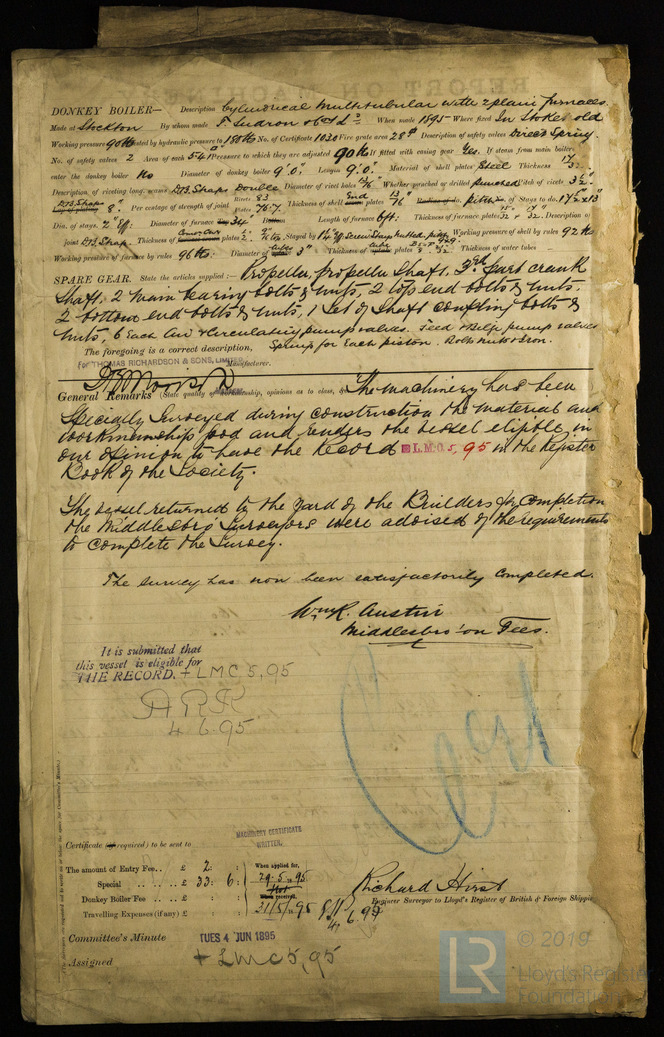 DONKEY BOILER— Description Cylindrical Multitubular with 2 plain furnaces
Made at Stockton By whom made When made 1895 Where fixed In Stokehold
Working pressure 90 lb tested by hydraulic pressure to 180 lb No. of Certificate 1030 Fire grate area 28 ft Description of safety valves Direct Spring.
No. of safety valves 2 Area of each 5.40" Pressure to which they are adjusted 90 lb If fitted with easing gear Yes. If steam from main boilers
enter the donkey boiler No Diameter of donkey boiler 9'.0" Length 9'.0" Material of shell plates Steel Thickness 17/32"
Description of riveting long. seams Double Diameter of rivet holes 13/16" Whether punched or drilled punched Pitch of rivets
8" Per centage of strength of joint Rivets 83 Plates 76.7 Thickness of shell plates Radius of do. No. of Stays to do.
Dia. of stays. Diameter of furnace Top 34" Bottom Length of furnace 6 ft Thickness of furnace plates Description of
joint Thickness of plates Stayed by Working pressure of shell by rules 92 lb
Working pressure of furnace by rules 96 lb Diameter of 3" Thickness of plates Thickness of water tubes
SPARE GEAR. State the articles supplied:— Propeller, propeller shaft. 3rd part crank
shaft. 2 main bearing bolts & nuts, 2 top end bolts & nuts.
2 bottom end bolts & nuts, 1 set of shaft coupling bolts &
nuts, 6 Each Air & Circulating pump valves. Feed & Bilge pump valves
Spring for Each piston. Bolts nuts & iron.
The foregoing is a correct description,
For THOMAS RICHARDSON & SONS, LIMITED Manufacturer.
General Remarks (State quality of workmanship, opinions as to class, &c. The machinery has been
specially surveyed during construction the material and
workmanship good and renders the vessel eligible in
our opinion to have the Record L.M.C. 5, 95 in the Register
Book of the Society.
The vessel returned to the yard of the Builders for completion
the Middlesbro surveyors were advised of the requirements
to complete the survey.
The survey has now been satisfactorily completed.
Wm R. Austin
Middlesbro'-on Tees.
It is submitted that
this vessel is eligible for
THE RECORD. + LMC 5,95
4.6.95
Cert
MACHINERY CERTIFICATE
WRITTEN.
Certificate (if required) to be sent to
The amount of Entry Fee.. £ 2: : When applied for,
Special .. .. .. £ 33: 6: 29.5.95
Donkey Boiler Fee .. .. £ : : When received,
Travelling Expenses (if any) £ : : 31/5/95
Richard Hirst
Engineer Surveyor to Lloyd's Register of British & Foreign Shipping
Committee's Minute TUES 4 JUN 1895
Assigned + LMC 5,95
LR
© 2019
Lloyd's Register
Foundation